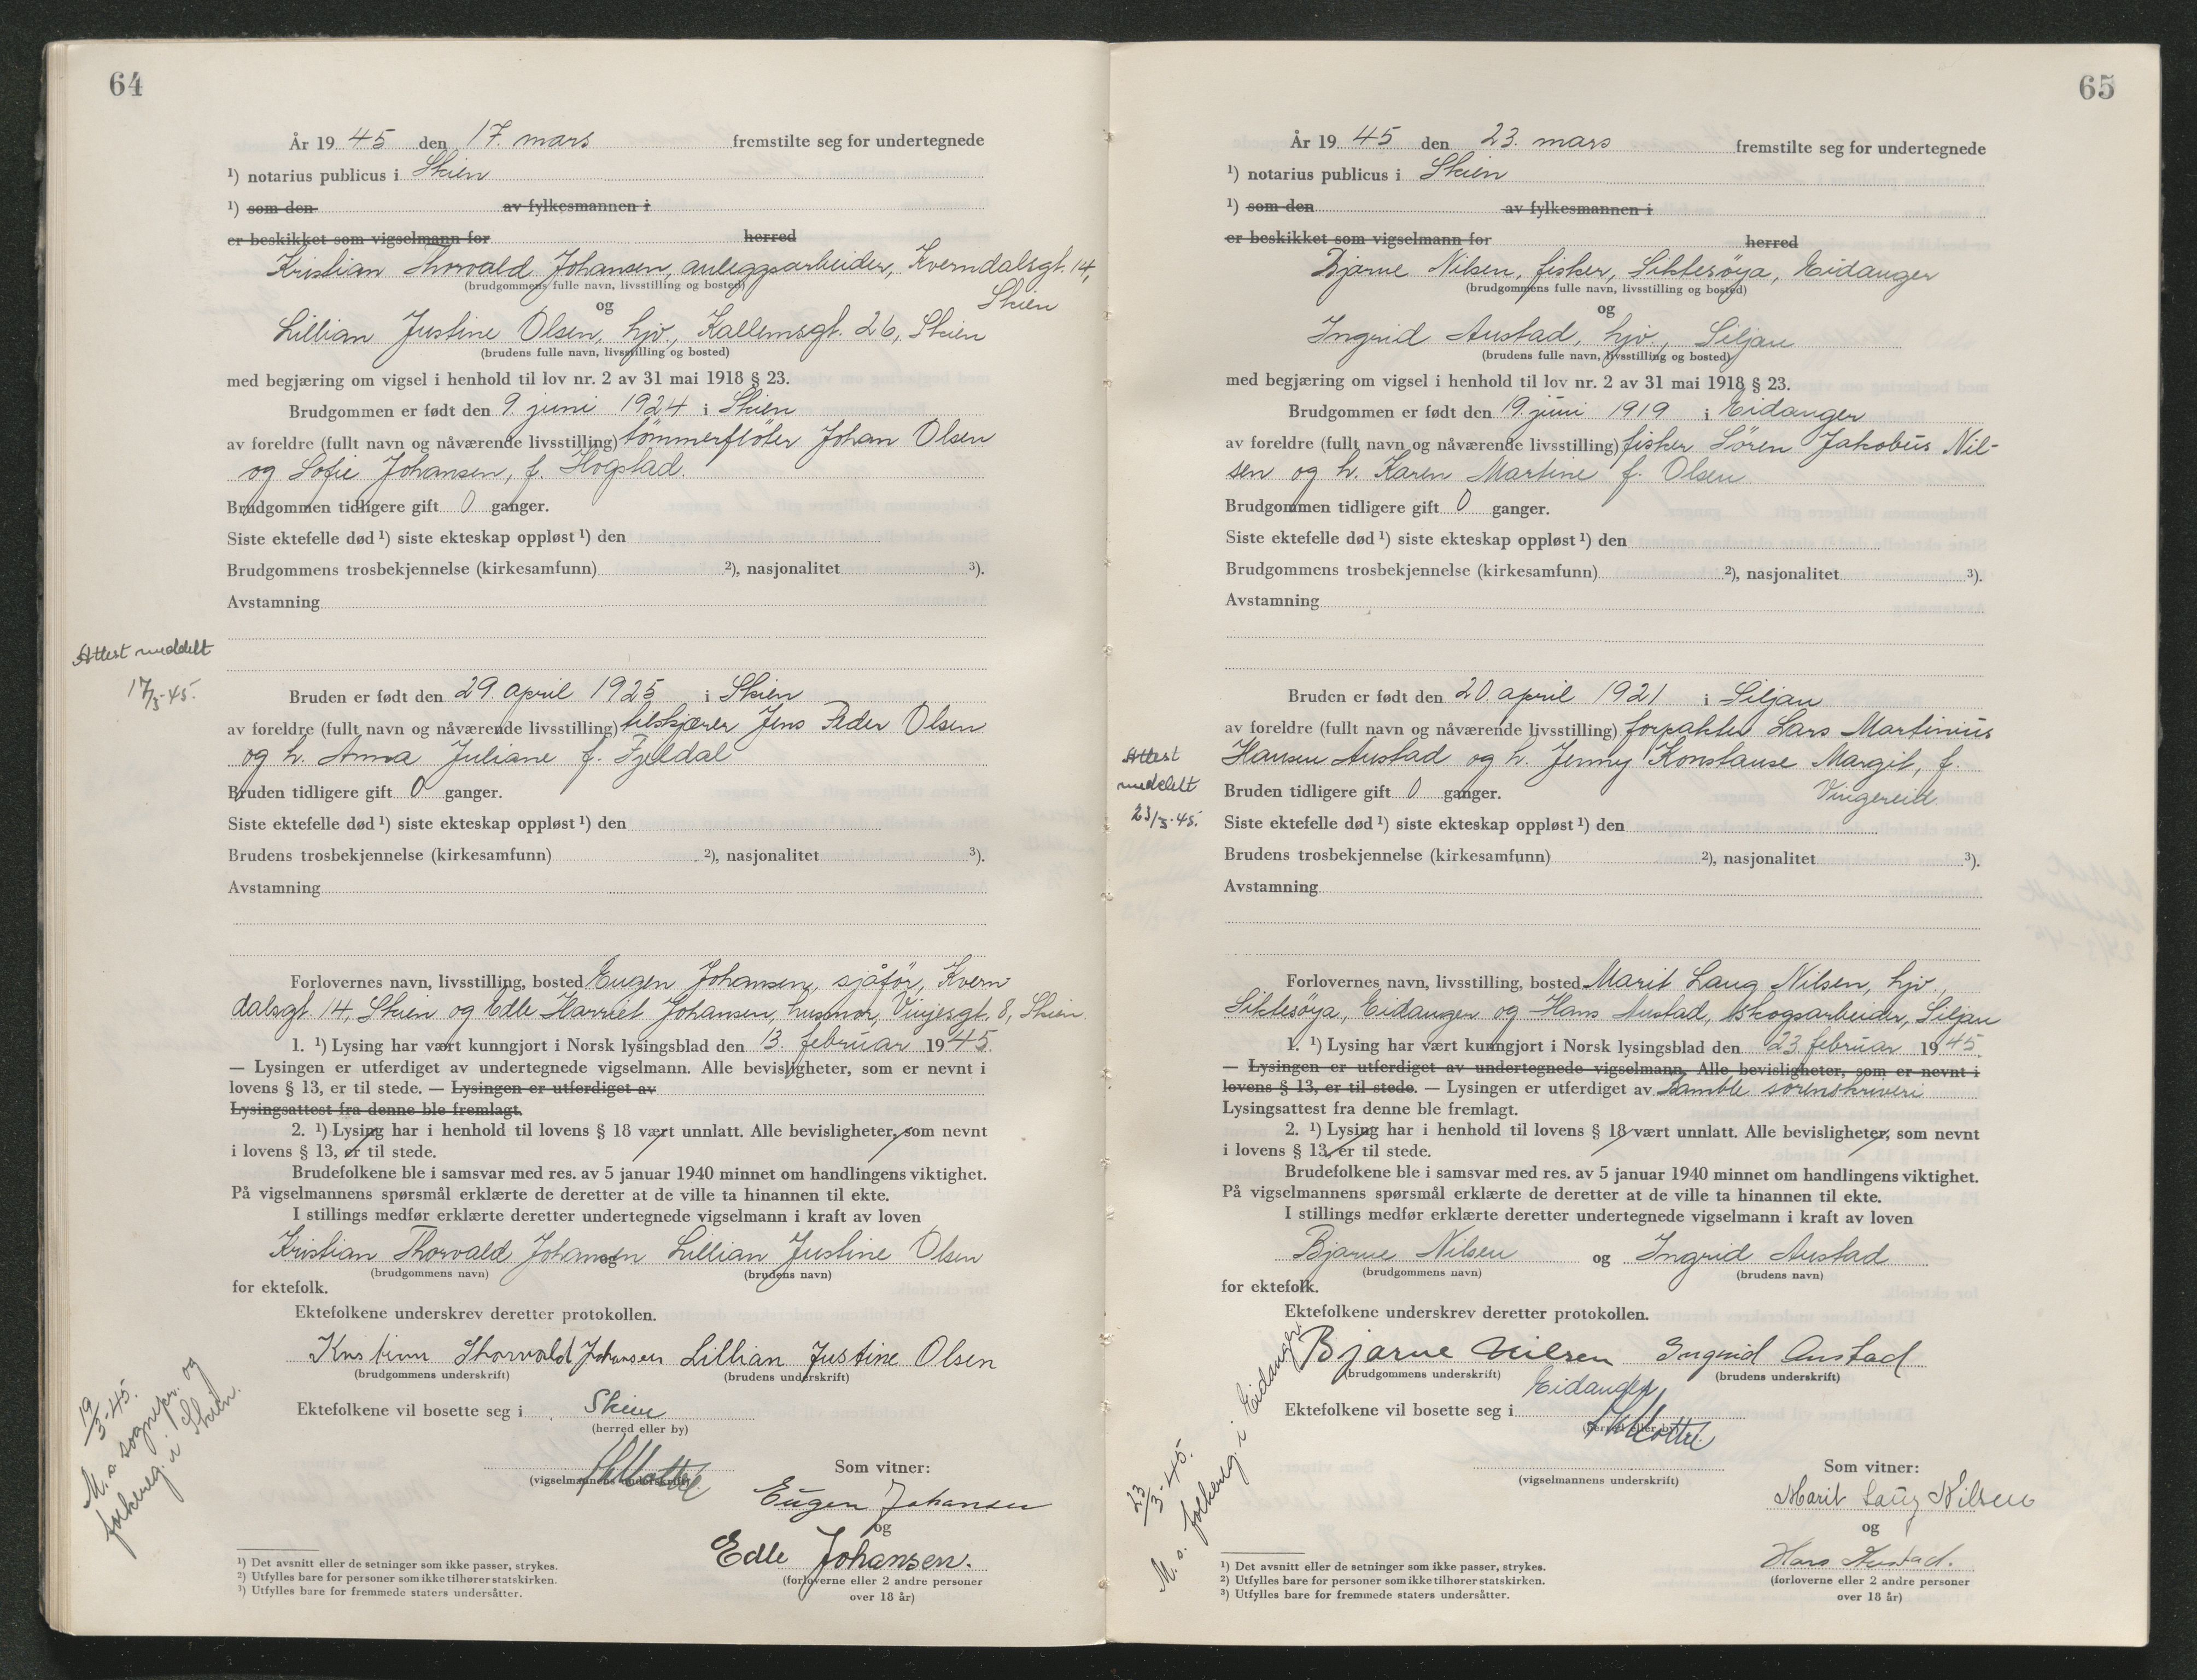 64
År 19 45 den 17. mars fremstilte seg for undertegnede
¹) notarius publicus i Skien
¹) som den av fylkesmannen i
er beskikket som vigselmann for herred
Kristian Thorvald Johansen, anleggsarbeider, Kverndalsgt. 14,
(brudgommens fulle navn, livsstilling og bosted)
Skien
og
Lillian Justine Olsen, hjv., Kallemsgt. 26, Skien
(brudens fulle navn, livsstilling og bosted)
med begjæring om vigsel i henhold til lov nr. 2 av 31 mai 1918 § 23.
Brudgommen er født den 9. juni 1924 i Skien
av foreldre (fullt navn og nåværende livsstilling) tömmerflöter Johan Olsen
og Sofie Johansen, f. Hogstad.
Brudgommen tidligere gift 0 ganger.
Siste ektefelle død ¹) siste ekteskap oppløst ¹) den
Brudgommens trosbekjennelse (kirkesamfunn) ²), nasjonalitet ³).
Avstamning
Attest meddelt
17/3-45.
Bruden er født den 29. april 1925 i Skien
av foreldre (fullt navn og nåværende livsstilling) tilskjærer Jens Peder Olsen
og h. Anna Juliane f. Fjeldal
Bruden tidligere gift 0 ganger.
Siste ektefelle død ¹) siste ekteskap oppløst ¹) den
Brudens trosbekjennelse (kirkesamfunn) ²), nasjonalitet ³).
Avstamning
Forlovernes navn, livsstilling, bosted Eugen Johansen, sjåför, Kvern-
dalsgt. 14, Skien og Edle Harriet Johansen, husmor, Vinjesgt. 8, Skien.
1. ¹) Lysing har vært kunngjort i Norsk lysingsblad den 13. februar 1945.
— Lysingen er utferdiget av undertegnede vigselmann. Alle bevisligheter, som er nevnt i
lovens § 13, er til stede. — Lysingen er utferdiget av
Lysingsattest fra denne ble fremlagt.
2. ¹) Lysing har i henhold til lovens § 18 vært unnlatt. Alle bevisligheter, som nevnt
i lovens § 13, er til stede.
Brudefolkene ble i samsvar med res. av 5 januar 1940 minnet om handlingens viktighet.
På vigselmannens spørsmål erklærte de deretter at de ville ta hinannen til ekte.
I stillings medfør erklærte deretter undertegnede vigselmann i kraft av loven
Kristian Thorvald Johansen og Lillian Justine Olsen
(brudgommens navn) (brudens navn)
for ektefolk.
Ektefolkene underskrev deretter protokollen.
Kristian Thorvald Johansen Lillian Justine Olsen
(brudgommens underskrift) (brudens underskrift)
Ektefolkene vil bosette seg i Skien
(herred eller by)
(vigselmannens underskrift)
Som vitner:
Eugen Johansen
og
Edle Johansen.
(forloverne eller 2 andre personer
over 18 år)
19/3-45.
M. s. sognepr. og
folkereg. i Skien.
¹) Det avsnitt eller de setninger som ikke passer, strykes.
²) Utfylles bare for personer som ikke tilhører statskirken.
³) Utfylles bare for fremmede staters undersåtter.
65
År 19 45 den 23. mars fremstilte seg for undertegnede
¹) notarius publicus i Skien
¹) som den av fylkesmannen i
er beskikket som vigselmann for herred
Bjarne Nilsen, fisker, Siktesøya, Eidanger
(brudgommens fulle navn, livsstilling og bosted)
og
Ingrid Austad, hjv., Siljan
(brudens fulle navn, livsstilling og bosted)
med begjæring om vigsel i henhold til lov nr. 2 av 31 mai 1918 § 23.
Brudgommen er født den 19. juni 1919 i Eidanger
av foreldre (fullt navn og nåværende livsstilling) fisker Sören Jakobus Nil-
sen og h. Karen Martine f. Olsen
Brudgommen tidligere gift 0 ganger.
Siste ektefelle død ¹) siste ekteskap oppløst ¹) den
Brudgommens trosbekjennelse (kirkesamfunn) ²), nasjonalitet ³).
Avstamning
Bruden er født den 20. april 1921 i Siljan
av foreldre (fullt navn og nåværende livsstilling) forpakter Lars Martinius
Hansen Austad og h. Jenny Konstanse Margit, f.
Vingereid.
Attest
meddelt
23/3-45.
Bruden tidligere gift 0 ganger.
Siste ektefelle død ¹) siste ekteskap oppløst ¹) den
Brudens trosbekjennelse (kirkesamfunn) ²), nasjonalitet ³).
Avstamning
Forlovernes navn, livsstilling, bosted Marit Laug Nilsen, hjv.,
Siktesøya, Eidanger og Hans Austad, skogsarbeider, Siljan
1. ¹) Lysing har vært kunngjort i Norsk lysingsblad den 23. februar 1945.
— Lysingen er utferdiget av undertegnede vigselmann. Alle bevisligheter, som er nevnt i
lovens § 13, er til stede. — Lysingen er utferdiget av Bamble sorenskriveri
Lysingsattest fra denne ble fremlagt.
2. ¹) Lysing har i henhold til lovens § 18 vært unnlatt. Alle bevisligheter, som nevnt
i lovens § 13, er til stede.
Brudefolkene ble i samsvar med res. av 5 januar 1940 minnet om handlingens viktighet.
På vigselmannens spørsmål erklærte de deretter at de ville ta hinannen til ekte.
I stillings medfør erklærte deretter undertegnede vigselmann i kraft av loven
Bjarne Nilsen og Ingrid Austad
(brudgommens navn) (brudens navn)
for ektefolk.
Ektefolkene underskrev deretter protokollen.
Bjarne Nilsen Ingrid Austad
(brudgommens underskrift) (brudens underskrift)
Ektefolkene vil bosette seg i Eidanger
(herred eller by)
(vigselmannens underskrift)
Som vitner:
Marit Laug Nilsen
og
Hans Austad.
(forloverne eller 2 andre personer
over 18 år)
23/3-45.
M. s. folkereg. i Eidanger
¹) Det avsnitt eller de setninger som ikke passer, strykes.
²) Utfylles bare for personer som ikke tilhører statskirken.
³) Utfylles bare for fremmede staters undersåtter.